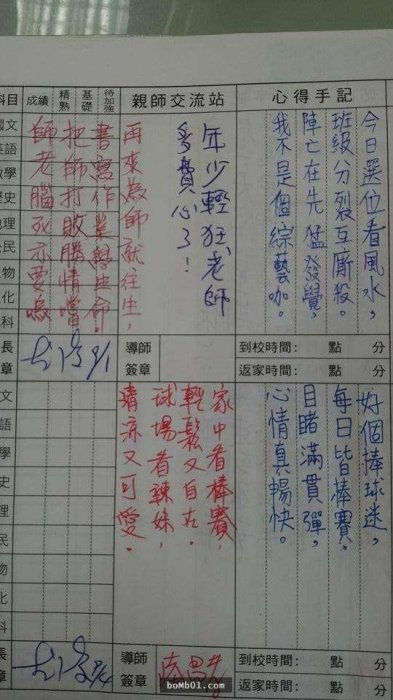 心得手記
親師交流站
待加強
基礎
精熟
成績
科目
今日選位看風水,
班級分裂互廝殺。
陣亡在先猛發覺,
我不是個綜藝咖。
年少輕狂,老師
多費心了!
再來為師就往生,
書寫作業學生命,
把師打敗勝情
師老腦死亦要
國文
英語
數學
歷史
地理
公民
生物
理化
到校時間: 點 分
返家時間: 點 分
導師
簽章
9/1
好個棒球迷,
每日皆棒賽。
目睹滿貫彈,
心情真暢快。
家中看棒賽,
輕鬆又自在。
球場看辣妹,
清涼又可愛。
到校時間: 點 分
返家時間: 點 分
導師
簽章
9/4
boMb01.com